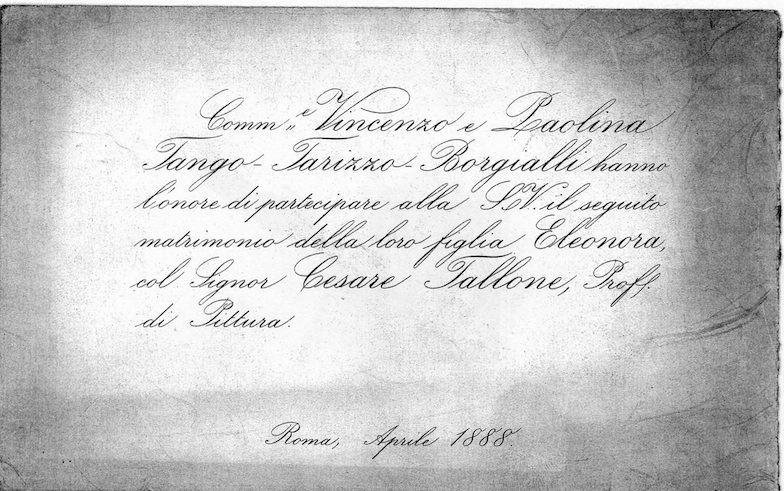 Comm„e Vincenzo e Paolina
Tango - Tarizzo - Borgialli hanno
l'onore di partecipare alla S.V. il seguito
matrimonio della loro figlia Eleonora,
col Signor Cesare Tallone, Proff:
di Pittura.
Roma, Aprile 1888.